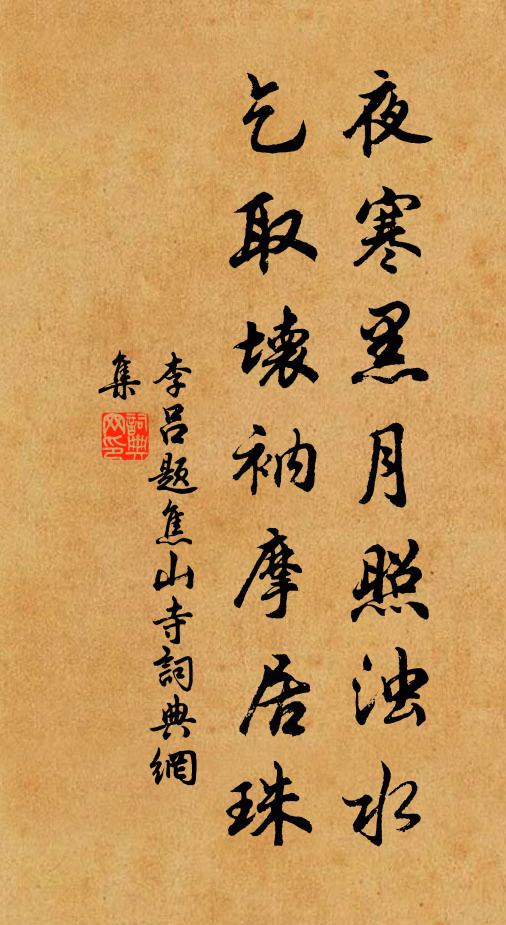 夜寒黑月照浊水
乞取壊衲摩居珠
李吕题焦山寺詞典網
集
詞典
网印